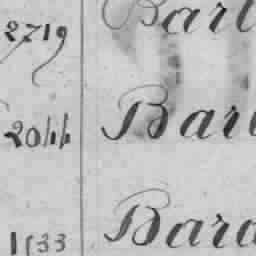 2719 Barl
2044 Bar
1533 Bara